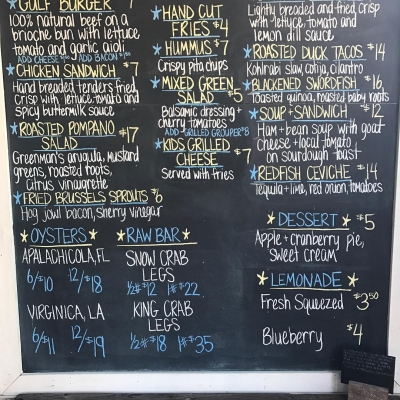 GULF BURGER 7
100% natural beef on a
brioche bun with lettuce
tomato and garlic aioli
ADD CHEESE ADD BACON
CHICKEN SANDWICH $7
Hand breaded tenders fried,
crisp with lettuce tomato and
spicy buttermilk sauce
ROASTED POMPANO $17
SALAD
Greenman's arugula, mustard
greens, roasted roots,
citrus vinaigrette
FRIED BRUSSELS SPROUTS $6
Hog jowl bacon, sherry vinegar
OYSTERS
APALACHICOLA, FL
6/$10 12/$18
VIRGINICA, LA
6/$11 12/$19
HAND CUT
FRIES $4
HUMMUS $7
Crispy pita chips
MIXED GREEN
SALAD $5
Balsamic dressing +
cherry tomatoes
ADD GRILLED GROUPER $8
KIDS GRILLED
CHEESE $7
Served with fries
RAW BAR
SNOW CRAB
LEGS
1/2# $12 1# $22
KING CRAB
LEGS
1/2# $18 1# $35
Lightly breaded and fried, crisp
with lettuce, tomato and
lemon dill sauce
ROASTED DUCK TACOS $14
Kohlrabi slaw, cotija, cilantro
BLACKENED SWORDFISH $16
Toasted quinoa, roasted baby roots
SOUP + SANDWICH $12
Ham + bean soup with goat
cheese + local tomato
on sourdough toast
REDFISH CEVICHE $14
Tequila + lime, red onion, tomatoes
DESSERT $5
Apple + cranberry pie,
sweet cream
LEMONADE
Fresh Squeezed $3.50
Blueberry $4